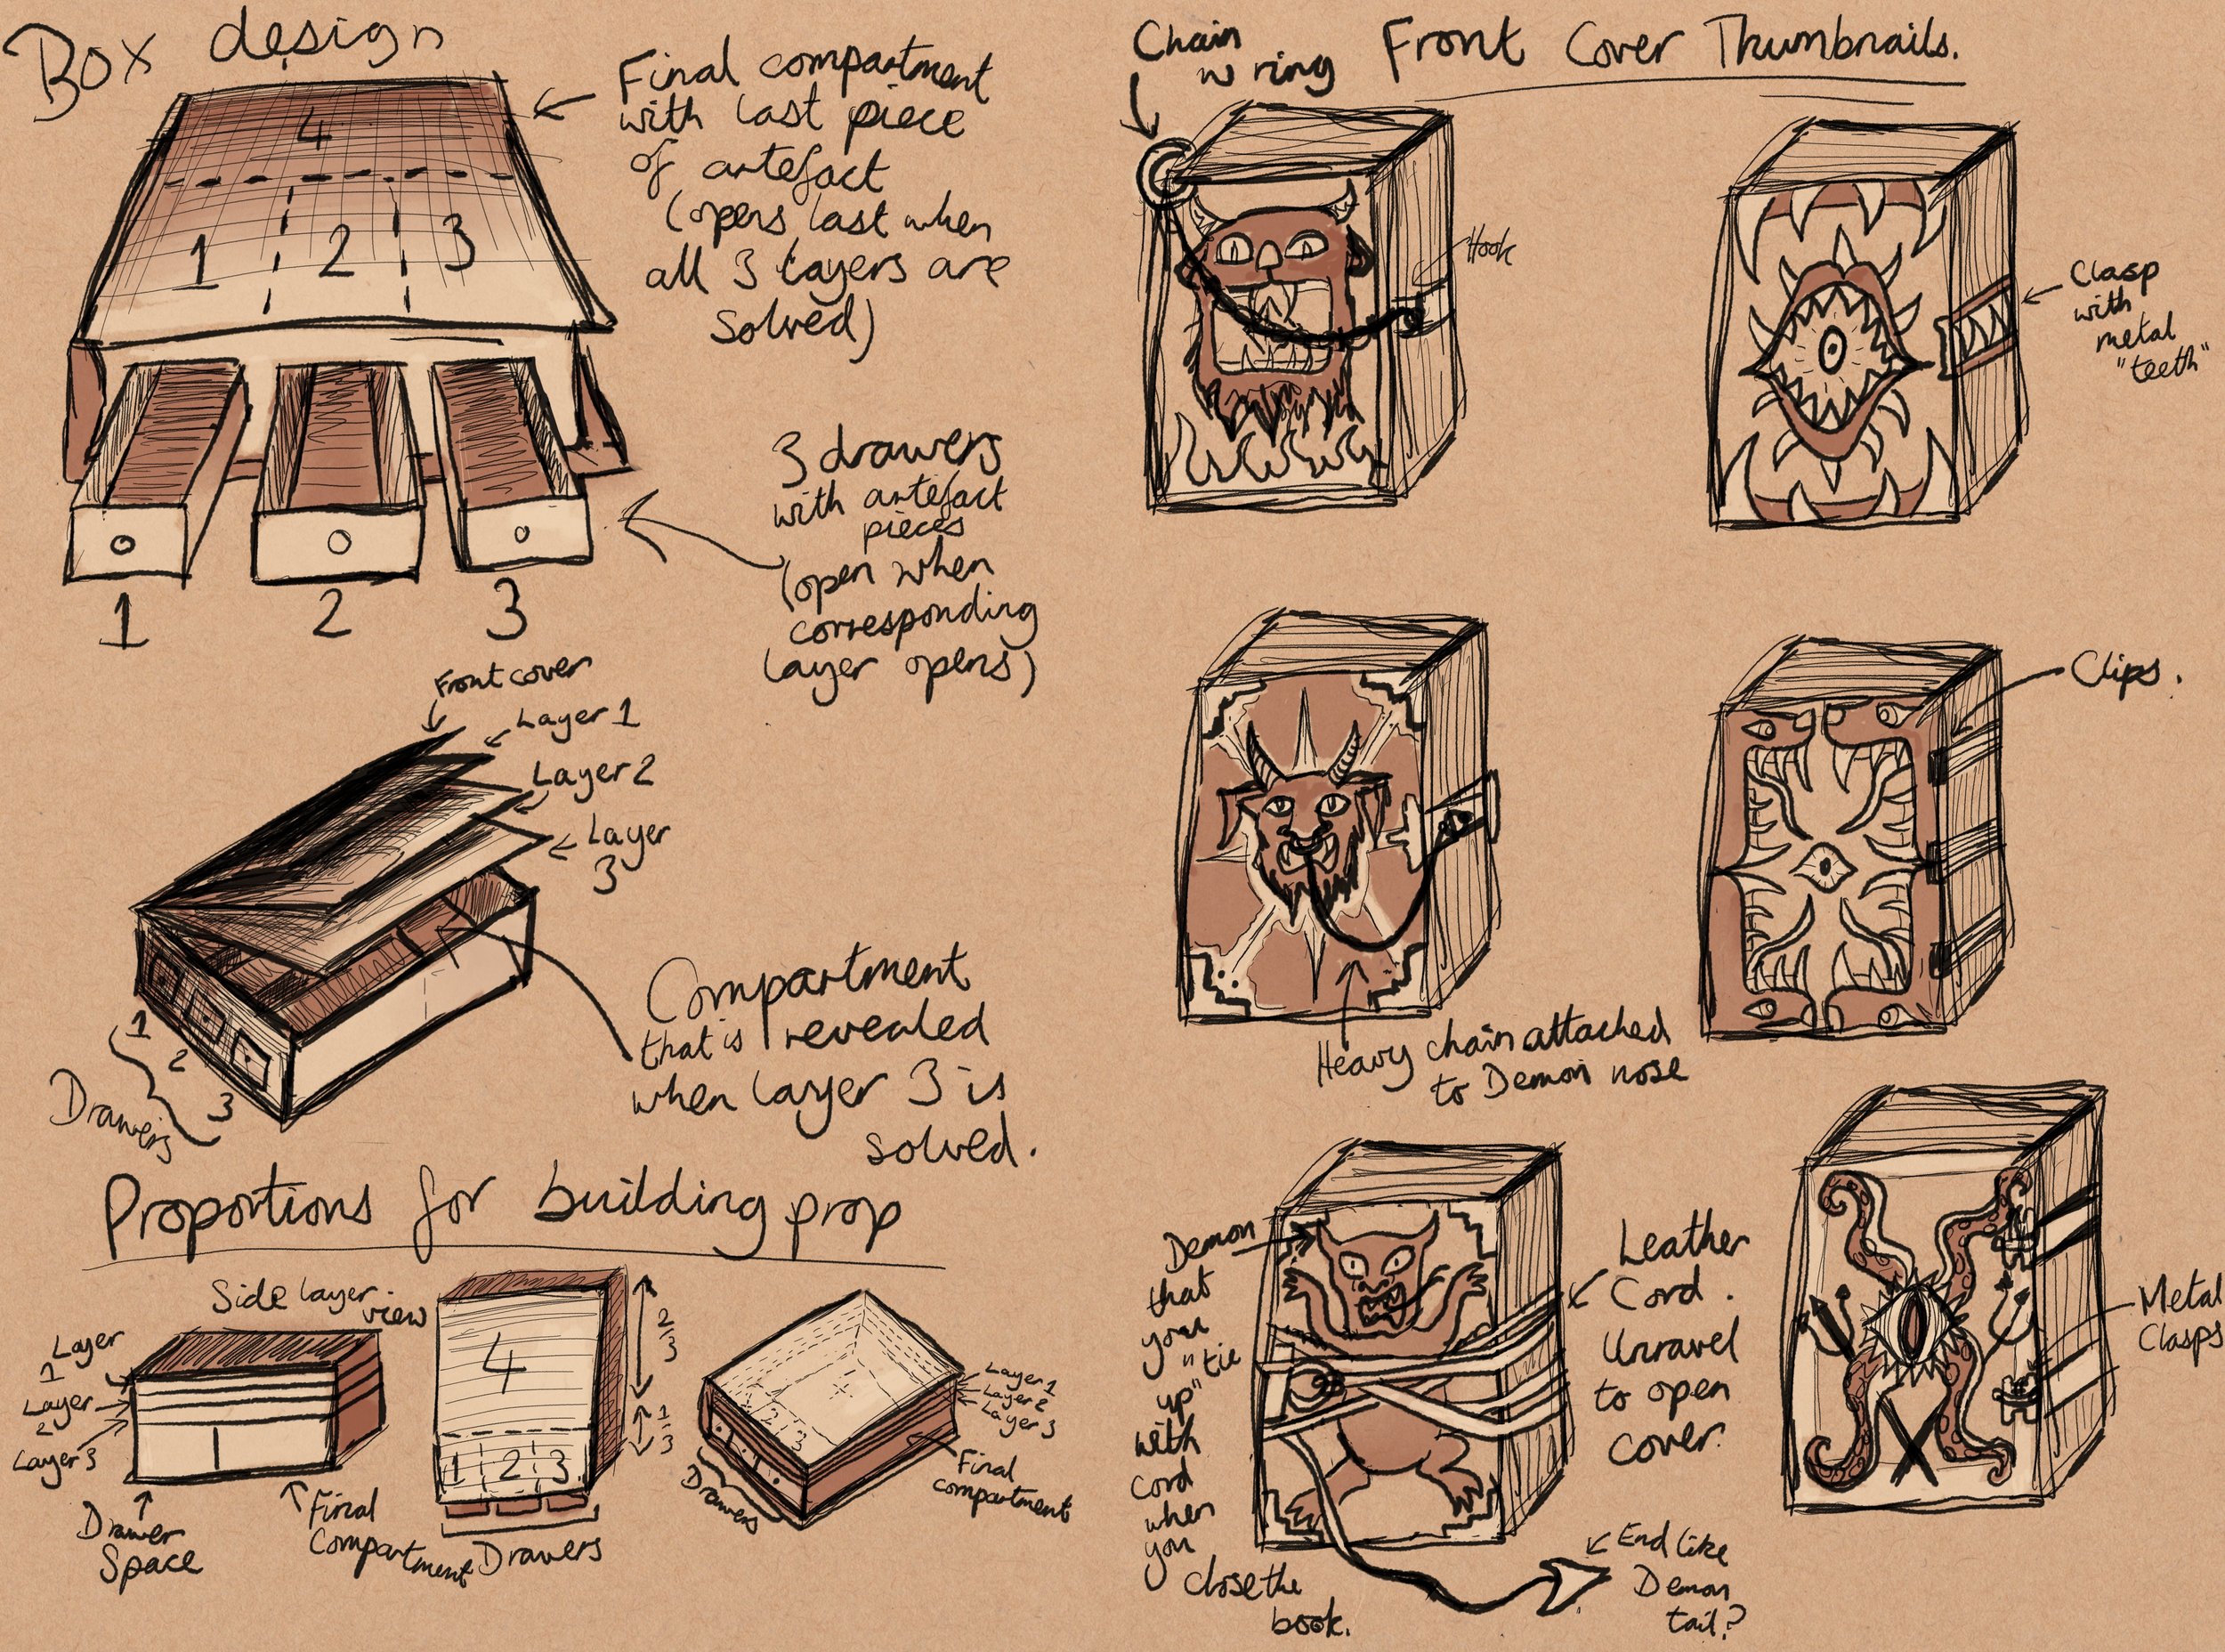 Box design
4
1 2 3
Final compartment
with last piece
of artefact
(opens last when
all 3 layers are
solved)
1 2 3
3 drawers
with artefact
pieces
(open when
corresponding
layer opens)
Front cover
Layer 1
Layer 2
Layer
3
1
2
3
Drawers
Compartment
that is revealed
when layer 3 is
solved.
Proportions for building prop
Side layer
view
Layer
1
Layer
2
Layer 3
Drawer
Space
Final
Compartment
4
1 2 3
2/3
1/3
Drawers
1 2 3
Layer 1
Layer 2
Layer 3
Drawers
Final
compartment
Front Cover Thumbnails.
Chain
w ring
Hook
Clasp
with
metal
"teeth"
Heavy chain attached
to Demon nose
Clips.
Demon
that
you
"tie
up"
with
cord
when
you
close the
book.
Leather
Cord.
Unravel
to open
cover.
End like
Demon
tail?
Metal
Clasps